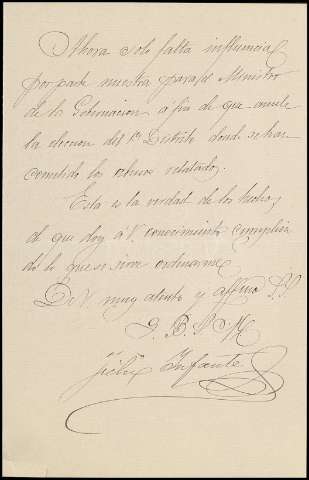 Ahora solo falta influencia
por parte nuestra para el Ministro
de la Gobernacion á fin de que anule
la eleccion del 1er Distrito donde se han
cometido los abusos relatados.
Esta es la verdad de los hechos,
de que doy á V. conocimiento cumplien
do lo que se sirve ordenarme
De V. muy atento y affmo S.S.
Q. B. S. M.
Félix Infante